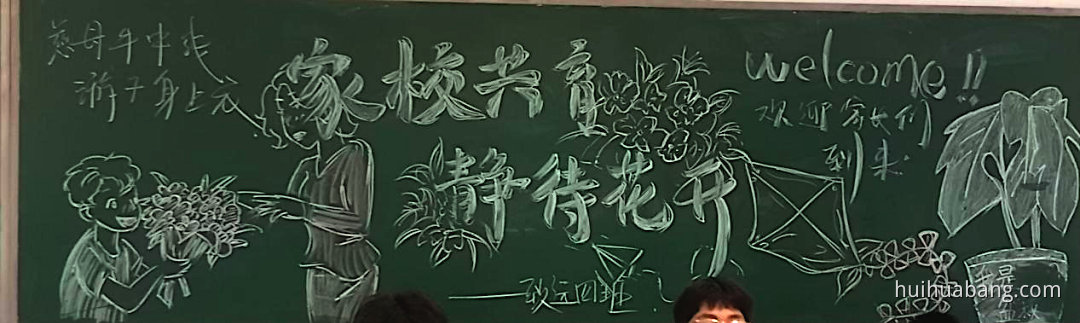 慈母手中线
游子身上衣
家校共育
静待花开
welcome!!
欢迎家长们
到来.
——致远四班
我是
盆栽
huihuabang.com